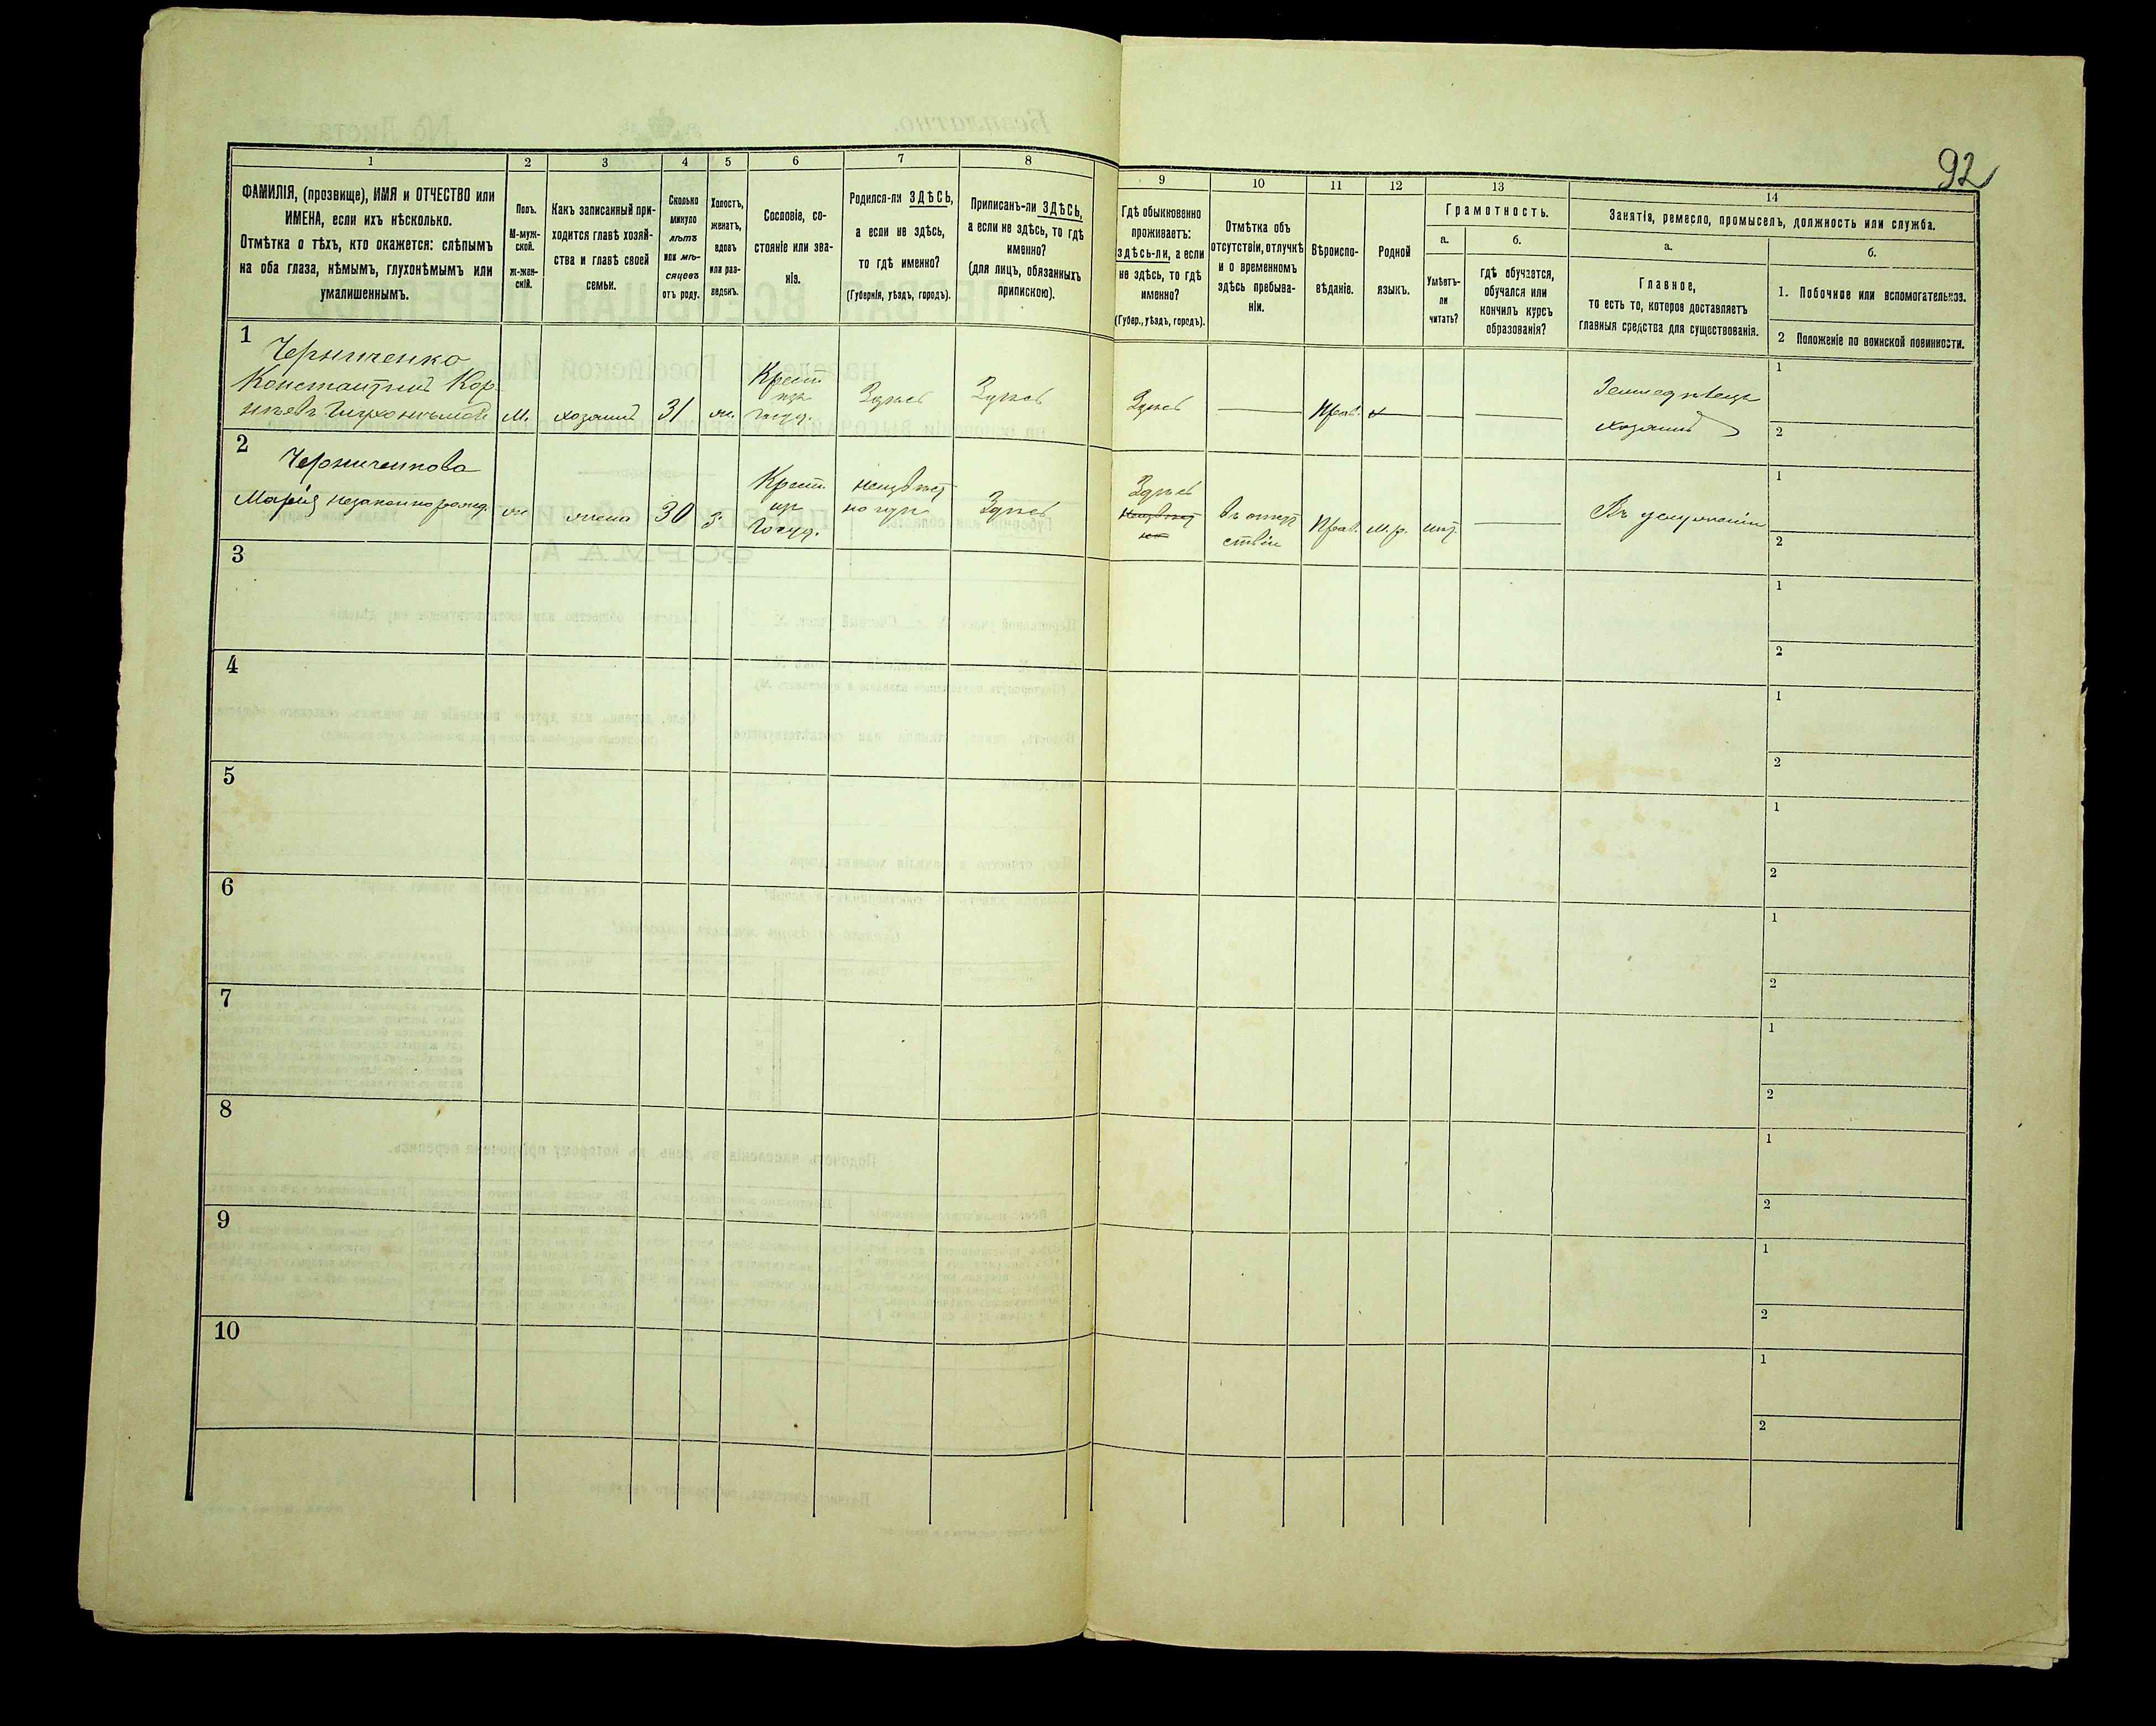 92
1 2 3 4 5 6 7 8 9 10 11 12 13 14
ФАМИЛІЯ, (прозвище), ИМЯ и ОТЧЕСТВО или
ИМЕНА, если ихъ нѣсколько.
Отмѣтка о тѣхъ, кто окажется: слѣпымъ
на оба глаза, нѣмымъ, глухонѣмымъ или
умалишеннымъ.
Полъ.
М-муж-
ской.
ж-жен-
скій.
Какъ записанный при-
ходится главѣ хозяй-
ства и главѣ своей
семьи.
Сколько
минуло
лѣтъ
или мѣ-
сяцевъ
отъ роду.
Холостъ,
женатъ,
вдовъ
или раз-
веденъ.
Сословіе, со-
стояніе или зва-
ніе.
Родился-ли ЗДѢСЬ,
а если не здѣсь,
то гдѣ именно?
(Губернія, уѣздъ, городъ).
Приписанъ-ли ЗДѢСЬ,
а если не здѣсь, то гдѣ
именно?
(для лицъ, обязанныхъ
припискою).
Гдѣ обыкновенно
проживаетъ:
здѣсь-ли, а если
не здѣсь, то гдѣ
именно?
(Губер., уѣздъ, городъ).
Отмѣтка объ
отсутствіи, отлучкѣ
и о временномъ
здѣсь пребыва-
ніи.
Вѣроиспо-
вѣданіе.
Родной
языкъ.
Грамотность.
а.
Умѣетъ-
ли
читать?
б.
гдѣ обучается,
обучался или
кончилъ курсъ
образованія?
Занятія, ремесло, промыселъ, должность или служба.
а.
Главное,
то есть то, которое доставляетъ
главныя средства для существованія.
б.
1. Побочное или вспомогательное.
2 Положеніе по воинской повинности.
1
Черниченко
Константинъ Кор-
нѣевъ Глухонѣмой
М.
хозяинъ
31
ж.
Крест.
изъ
Госуд.
Здѣсь
Здѣсь
Здѣсь
Прав.
Земледѣлецъ
хозяинъ
1
2
2
Черниченкова
Марія незаконнорожд.
ж
жена
30
з.
Крест.
из
Госуд.
неизвѣст
но гдѣ
Здѣсь
Здѣсь
Въ отсут
ствіи
Прав.
м.р.
нѣт.
Въ услуженіи
1
2
3
1
2
4
1
2
5
1
2
6
1
2
7
1
2
8
1
2
9
1
2
10
1
2